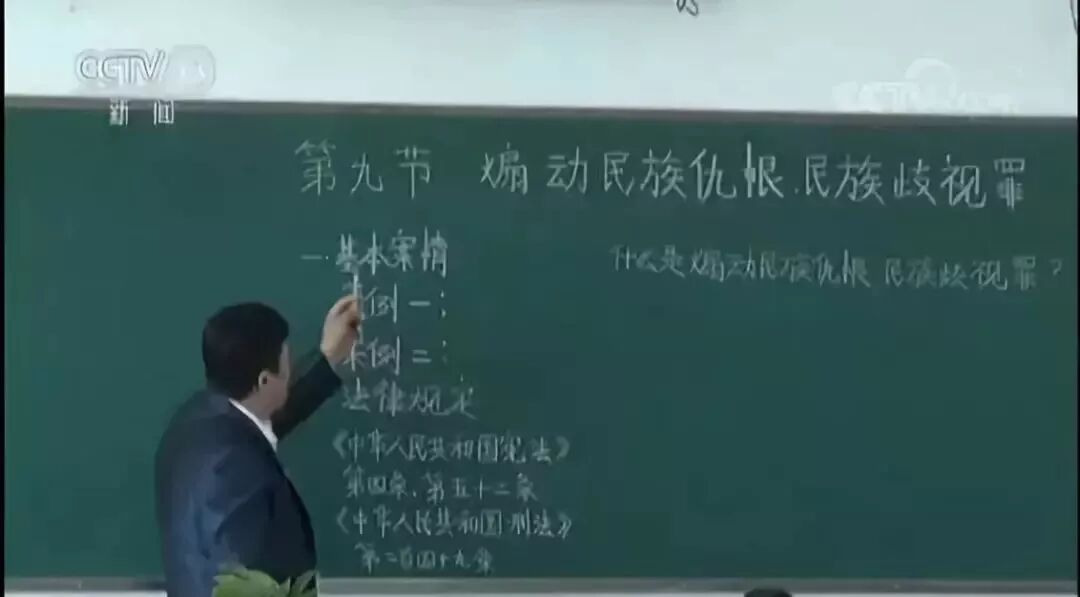 CCTV 13
新闻
第九节 煽动民族仇恨、民族歧视罪
一.基本案情
什么是煽动民族仇恨 民族歧视罪?
例一:
案例二:
法律规定
《中华人民共和国宪法》
第四条、第五十二条
《中华人民共和国刑法》
第二百四十九条